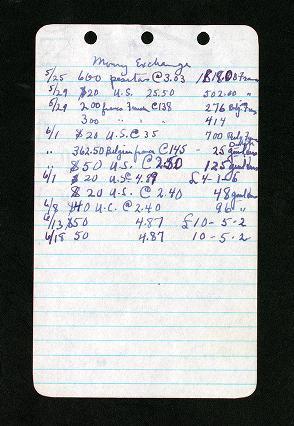 Money Exchange
5/25 600 pesetas @ 3.03
5/29 $20 U.S. 25.50 502.00 "
5/29 200 francs French @ 138 276 Belg. Frs
300 " " " 414
6/1 $20 U.S. @ 35 700 Belg.
" 362.50 Belgian francs @ 145 - 25 guilders
" $50 U.S. @ 2.50 125 guilders
6/1 $20 U.S. 4.89 £4-1-6
$20 U.S. @ 2.40 48 guilders
6/8 $40 U.S. @ 2.40 96 "
6/13 $50 4.87 £10-5-2
6/15 50 4.87 10-5-2